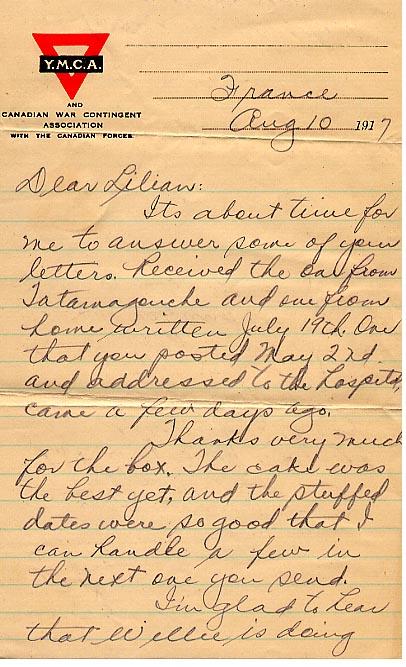 Y.M.C.A.
AND
CANADIAN WAR CONTINGENT
ASSOCIATION
WITH THE CANADIAN FORCES.
France
Aug 10 1917
Dear Lilian:
Its about time for
me to answer some of your
letters. Received the one from
Tatamagouche and one from
home written July 19th. One
that you posted May 2nd.
and addressed to the hospital,
came a few days ago.
Thanks very much
for the box. The cake was
the best yet, and the stuffed
dates were so good that I
can handle a few in
the next one you send.
I'm glad to hear
that Willie is doing